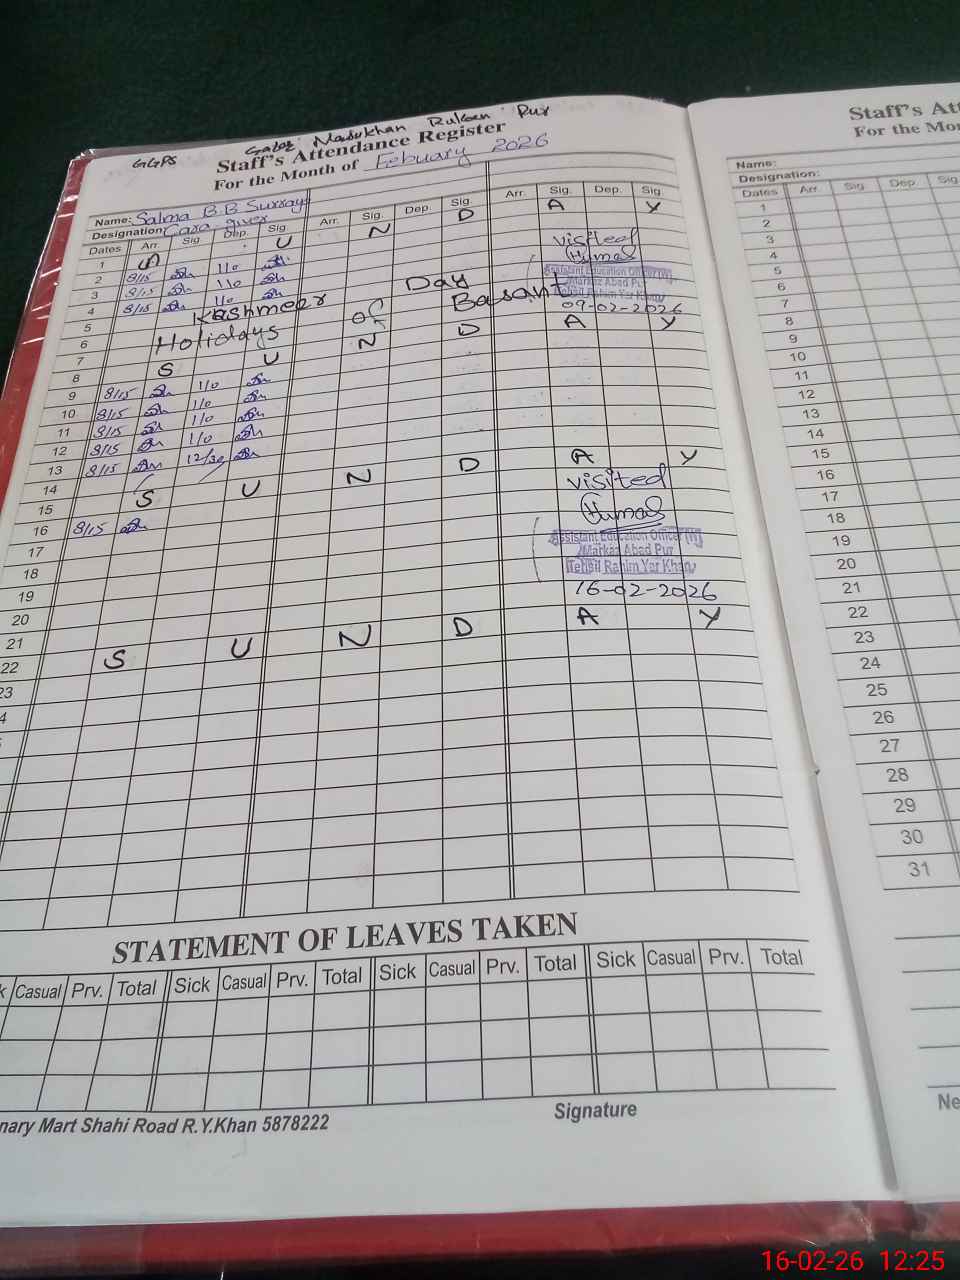 GGPS Gabol Masukhan Rukan Pur
Staff's Attendance Register
For the Month of Febuary 2026
Name: Salma B.B Surraya
Designation: Care giver
Dates Arr. Sig. Dep. Sig. Arr. Sig. Dep. Sig. Arr. Sig. Dep. Sig.
1 S U N D A Y
2 8/15 1/0
3 8/15 1/0
4 8/15 1/0
5 Kashmeer Day
6 Holidays of Basant
7
8 S U N D A Y
9 8/15 1/0
10 8/15 1/0
11 8/15 1/0
12 8/15 1/0
13 8/15 12/30
14
15 S U N D A Y
16 8/15
17
18
19
20
21
22 S U N D A Y
23
visited
Humas
Assistant Education Officer (W)
Markaz Abad Pur
Tehsil Rahim Yar Khan
09-02-2026
visited
Humas
Assistant Education Officer (W)
Markaz Abad Pur
Tehsil Rahim Yar Khan
16-02-2026
STATEMENT OF LEAVES TAKEN
Casual Prv. Total Sick Casual Prv. Total Sick Casual Prv. Total Sick Casual Prv. Total
Mart Shahi Road R.Y.Khan 5878222
Signature
Staff's
For the
Name:
Designation:
Dates Arr. Sig. Dep. Sig.
1
2
3
4
5
6
7
8
9
10
11
12
13
14
15
16
17
18
19
20
21
22
23
24
25
26
27
28
29
30
31
16-02-26 12:25